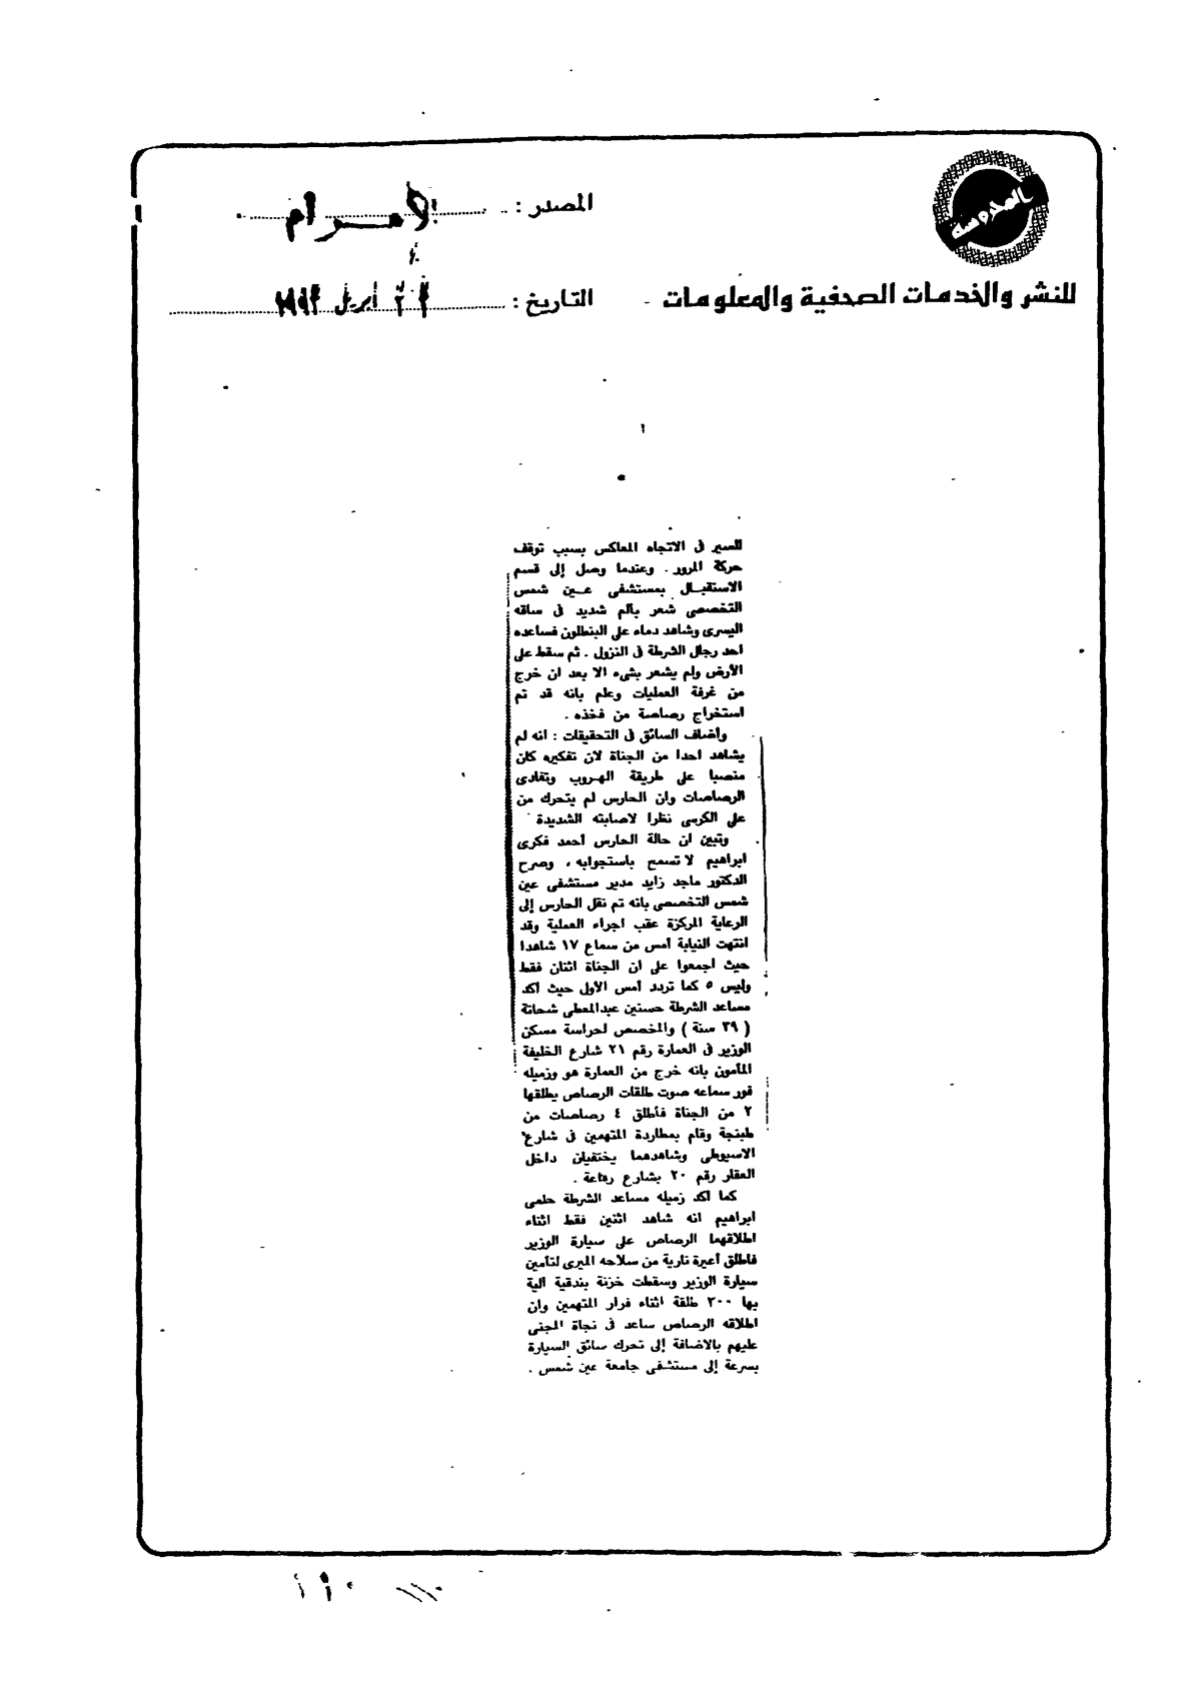 المحروسة
المصدر : الأهرام
للنشر والخدمات الصحفية والمعلومات
التاريخ : أبريل ١٩٩٣
للسير فى الاتجاه المعاكس بسبب توقف
حركة المرور . وعندما وصل إلى قسم
الاستقبال بمستشفى عين شمس
التخصصى شعر بالم شديد فى ساقه
اليسرى وشاهد دماء على البنطلون فساعده
احد رجال الشرطة فى النزول . ثم سقط على
الأرض ولم يشعر بشىء الا بعد ان خرج
من غرفة العمليات وعلم بانه قد تم
استخراج رصاصة من فخذه .
واضاف السائق فى التحقيقات : انه لم
يشاهد احدا من الجناة لان تفكيره كان
منصبا على طريقة الهروب وتفادى
الرصاصات وان الحارس لم يتحرك من
على الكرسى نظرا لاصابته الشديدة
وتبين ان حالة الحارس أحمد فكرى
ابراهيم لا تسمح باستجوابه ، وصرح
الدكتور ماجد زايد مدير مستشفى عين
شمس التخصصى بانه تم نقل الحارس إلى
الرعاية المركزة عقب اجراء العملية وقد
انتهت النيابة أمس من سماع ١٧ شاهدا
حيث اجمعوا على ان الجناة اثنان فقط
وليس ٥ كما تردد أمس الأول حيث أكد
مساعد الشرطة حسنين عبدالمعطى شحاتة
( ٣٩ سنة ) والمخصص لحراسة مسكن
الوزير فى العمارة رقم ٢١ شارع الخليفة
المأمون بانه خرج من العمارة هو وزميله
فور سماعه صوت طلقات الرصاص يطلقها
٢ من الجناة فأطلق ٤ رصاصات من
طبنجة وقام بمطاردة المتهمين فى شارع
الاسيوطى وشاهدهما يختفيان داخل
العقار رقم ٢٠ بشارع رفاعة .
كما اكد زميله مساعد الشرطة حلمى
ابراهيم انه شاهد اثنين فقط اثناء
اطلاقهما الرصاص على سيارة الوزير
فاطلق أعيرة نارية من سلاحه الميرى لتأمين
سيارة الوزير وسقطت خزنة بندقية آلية
بها ٢٠٠ طلقة اثناء فرار المتهمين وان
اطلاقه الرصاص ساعد فى نجاة المجنى
عليهم بالاضافة إلى تحرك سائق السيارة
بسرعة إلى مستشفى جامعة عين شمس .